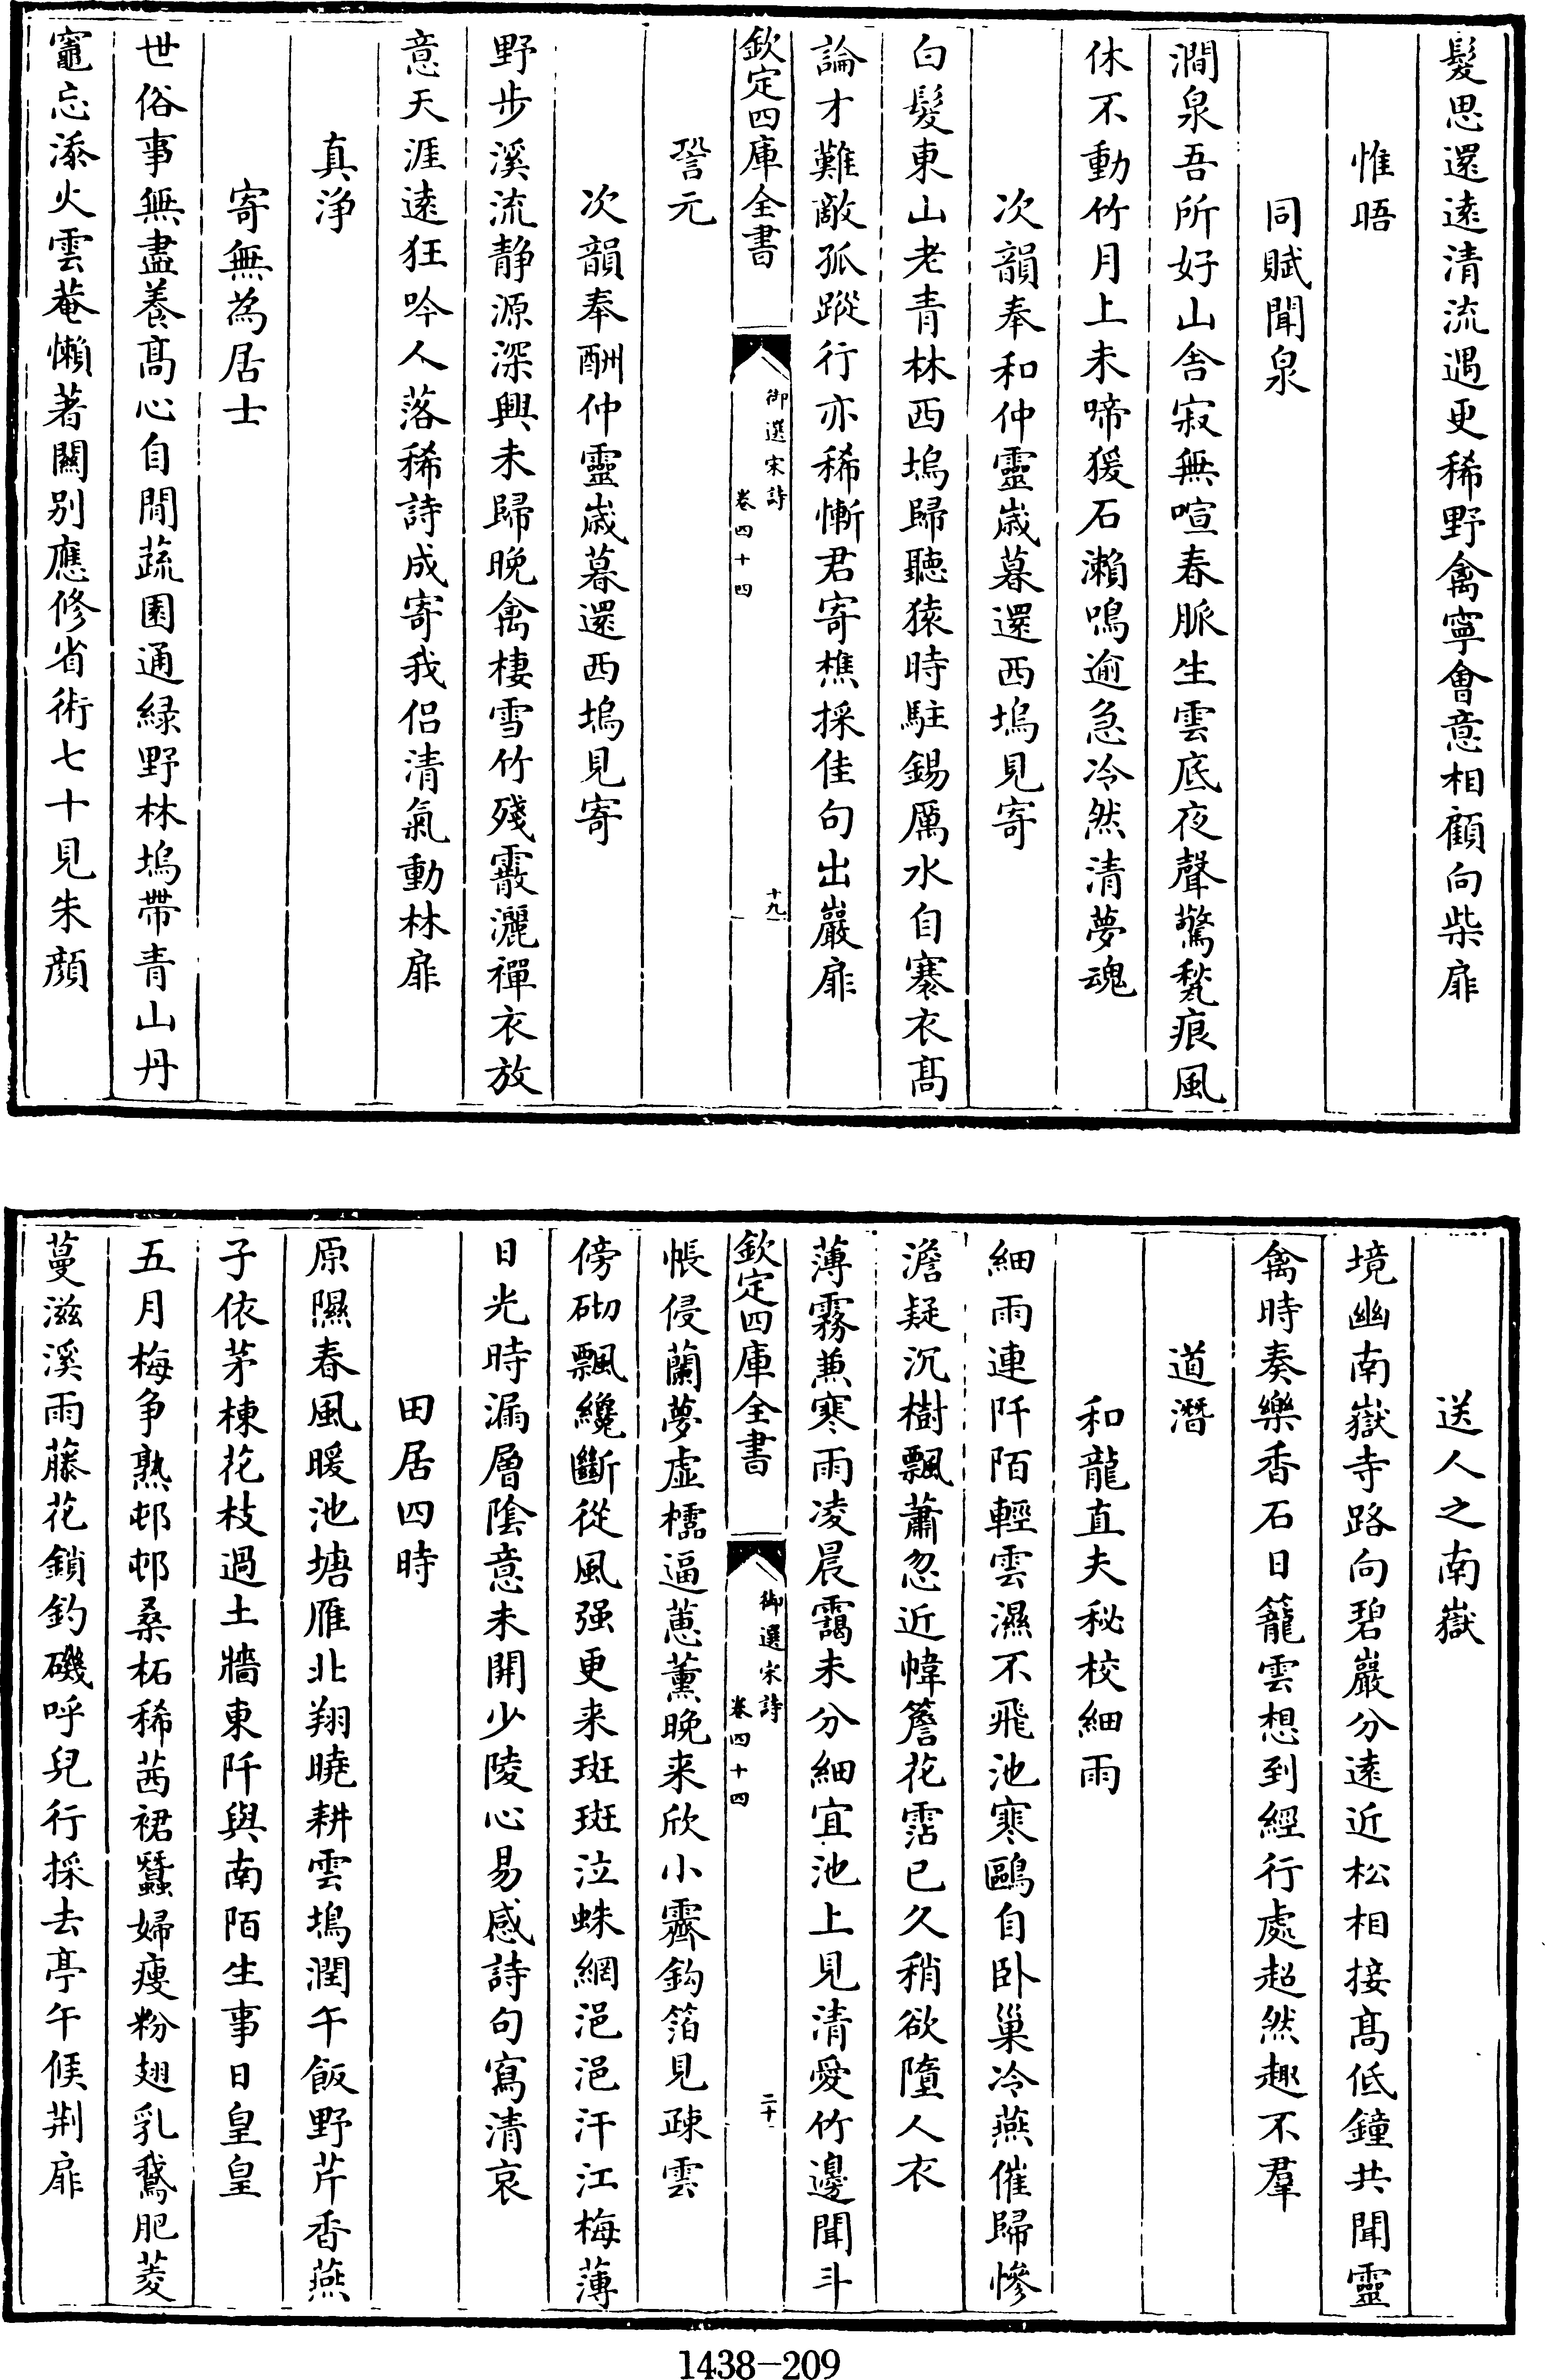 髮思還逺清流遇更稀野禽寧會意相顧向柴扉
惟晤
同賦聞泉
澗泉吾所好山舍寂無喧春脈生雲底夜聲驚甃痕風
休不動竹月上未啼猨石瀨鳴逾急冷然清夢魂
次韻奉和仲靈嵗暮還西塢見寄
白髮東山老青林西塢歸聽猿時駐錫厲水自褰衣髙
論才難敵孤蹤行亦稀慚君寄樵採佳句出巖扉
欽定四庫全書
御選宋詩
卷四十四
十九
詧元
次韻奉酬仲靈嵗暮還西塢見寄
野步溪流靜源深興未歸晚禽棲雪竹殘霰灑禪衣放
意天涯逺狂吟人落稀詩成寄我侣清氣動林扉
真淨
寄無為居士
世俗事無盡養髙心自閒蔬園通緑野林塢帶青山丹
竈忘添火雲菴懶著關别應修省術七十見朱顔
送人之南嶽
境幽南嶽寺路向碧巖分逺近松相接髙低鐘共聞靈
禽時奏樂香石日籠雲想到經行處超然趣不羣
道潛
和龍直夫秘校細雨
細雨連阡陌輕雲濕不飛池寒鷗自卧巢冷燕催歸慘
澹疑沉樹飄蕭忽近幃簷花霑已久稍欲墮人衣
薄霧兼寒雨凌晨靄未分細宜池上見清愛竹邊聞斗
欽定四庫全書
御選宋詩
卷四十四
二十
帳侵蘭夢虚櫺逼蕙薰晚来欣小霽鈎箔見疎雲
傍砌飄纔斷從風强更来斑斑泣蛛網浥浥汗江梅薄
日光時漏層陰意未開少陵心易感詩句寫清哀
田居四時
原隰春風暖池塘雁北翔曉耕雲塢潤午飯野芹香燕
子依茅棟花枝過土牆東阡與南陌生事日皇皇
五月梅争熟邨邨桑柘稀茜裙蠶婦瘦粉翅乳鵞肥菱
蔓滋溪雨藤花鎖釣磯呼兒行採去亭午候荆扉
1438-209